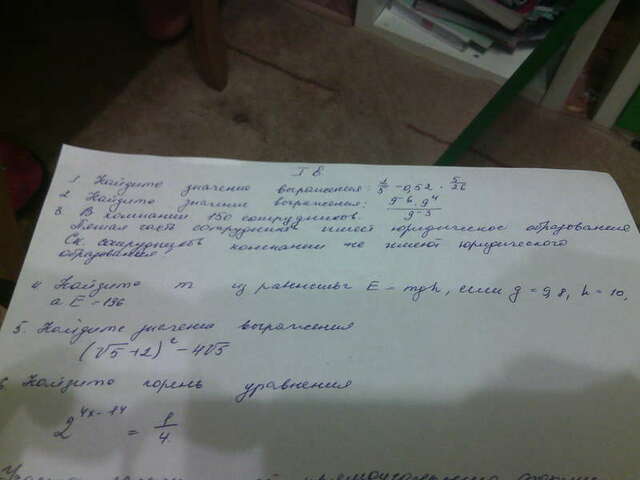 I В
1. Найдите значение выражения: 1/5 - 0,52 · 5/26
2. Найдите значение выражения: 9^-6 · 9^4 / 9^-3
3. В компании 150 сотрудников.
Пятая часть сотрудников имеет юридическое образование
Ск. сотрудников компании не имеют юридического
образования
4 Найдите m из равенства E = mgh, если g = 9,8, h = 10,
а E = 196
5. Найдите значение выражения
(√5 + 2)^2 - 4√5
6. Найдите корень уравнения
2^4x-14 = 1/4.